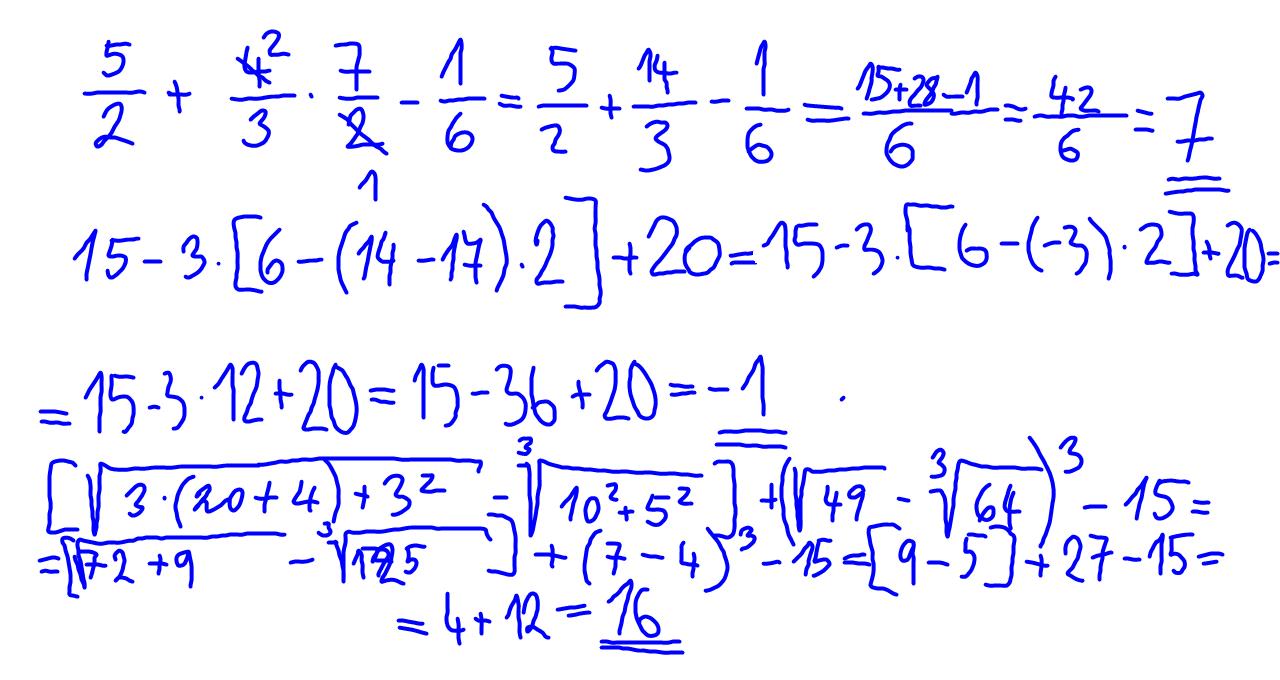 5/2 + 4̸²/3 · 7/2̸₁ - 1/6 = 5/2 + 14/3 - 1/6 = (15+28-1)/6 = 42/6 = 7
15 - 3 · [6 - (14 - 17) · 2] + 20 = 15 - 3 · [6 - (-3) · 2] + 20 =
= 15 - 3 · 12 + 20 = 15 - 36 + 20 = -1
[√(3 · (20 + 4) + 3²) - ³√(10² + 5²)] + (√49 - ³√64)³ - 15 =
= [√(72 + 9) - ³√125] + (7 - 4)³ - 15 = [9 - 5] + 27 - 15 =
= 4 + 12 = 16